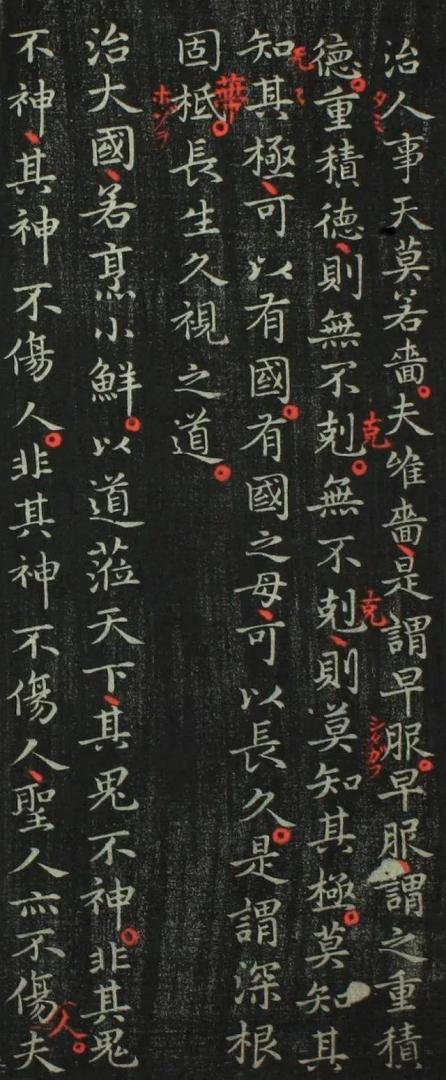 治人事天莫若嗇夫唯嗇是謂早服早服謂之重積
德重積德則無不剋無不剋則莫知其極莫知其
知其極可以有國有國之母可以長久是謂深根
固柢長生久視之道
治大國若烹小鮮以道莅天下其鬼不神非其鬼
不神其神不傷人非其神不傷人聖人亦不傷夫
タミ
克
克
シタガフ
ホゾヲ
人